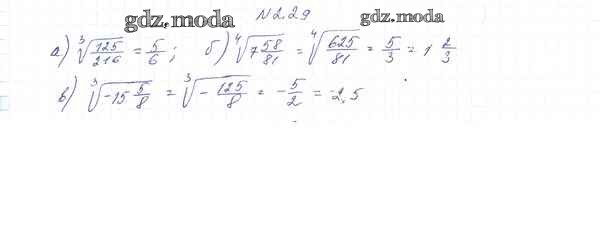 gdz.moda N2.29 gdz.moda
а) ∛(125/216) = 5/6; б) ∜(7 58/81) = ∜(625/81) = 5/3 = 1 2/3
в) ∛(-15 5/8) = ∛(-125/8) = -5/2 = -2,5